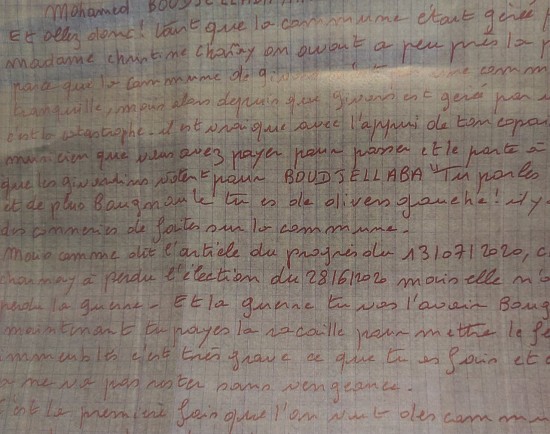 Mohamed BOUDJELLABA
Et allez donc! tant que la commune était gérée
madame christine Charnay on avait a peu près la
paix que la commune de une comm
tranquille, mais alors depuis que givors est geré par
c'est la catastrophe. il est vrai que avec l'appui de ton copain
musicien que vous avez payer pour passer et le porte à
que les givordins votent pour BOUDJELLABA Tu parles
et de plus Bougnoule tu es de divers gauche! il y
des conneries de faites sur la commune.
Mais comme dit l'article du progrès du 13/07/2020,
charnay à perdu l'élection du 28/6/2020 mais elle n'a
perdu la guerre - Et la guerre tu vas l'avoir Boug
maintenant tu payes la racaille pour mettre le fe
immeubles c'est très grave ce que tu as fais et
me va pas rester sans vengeance.
c'est la première fois que l'on voit des commu